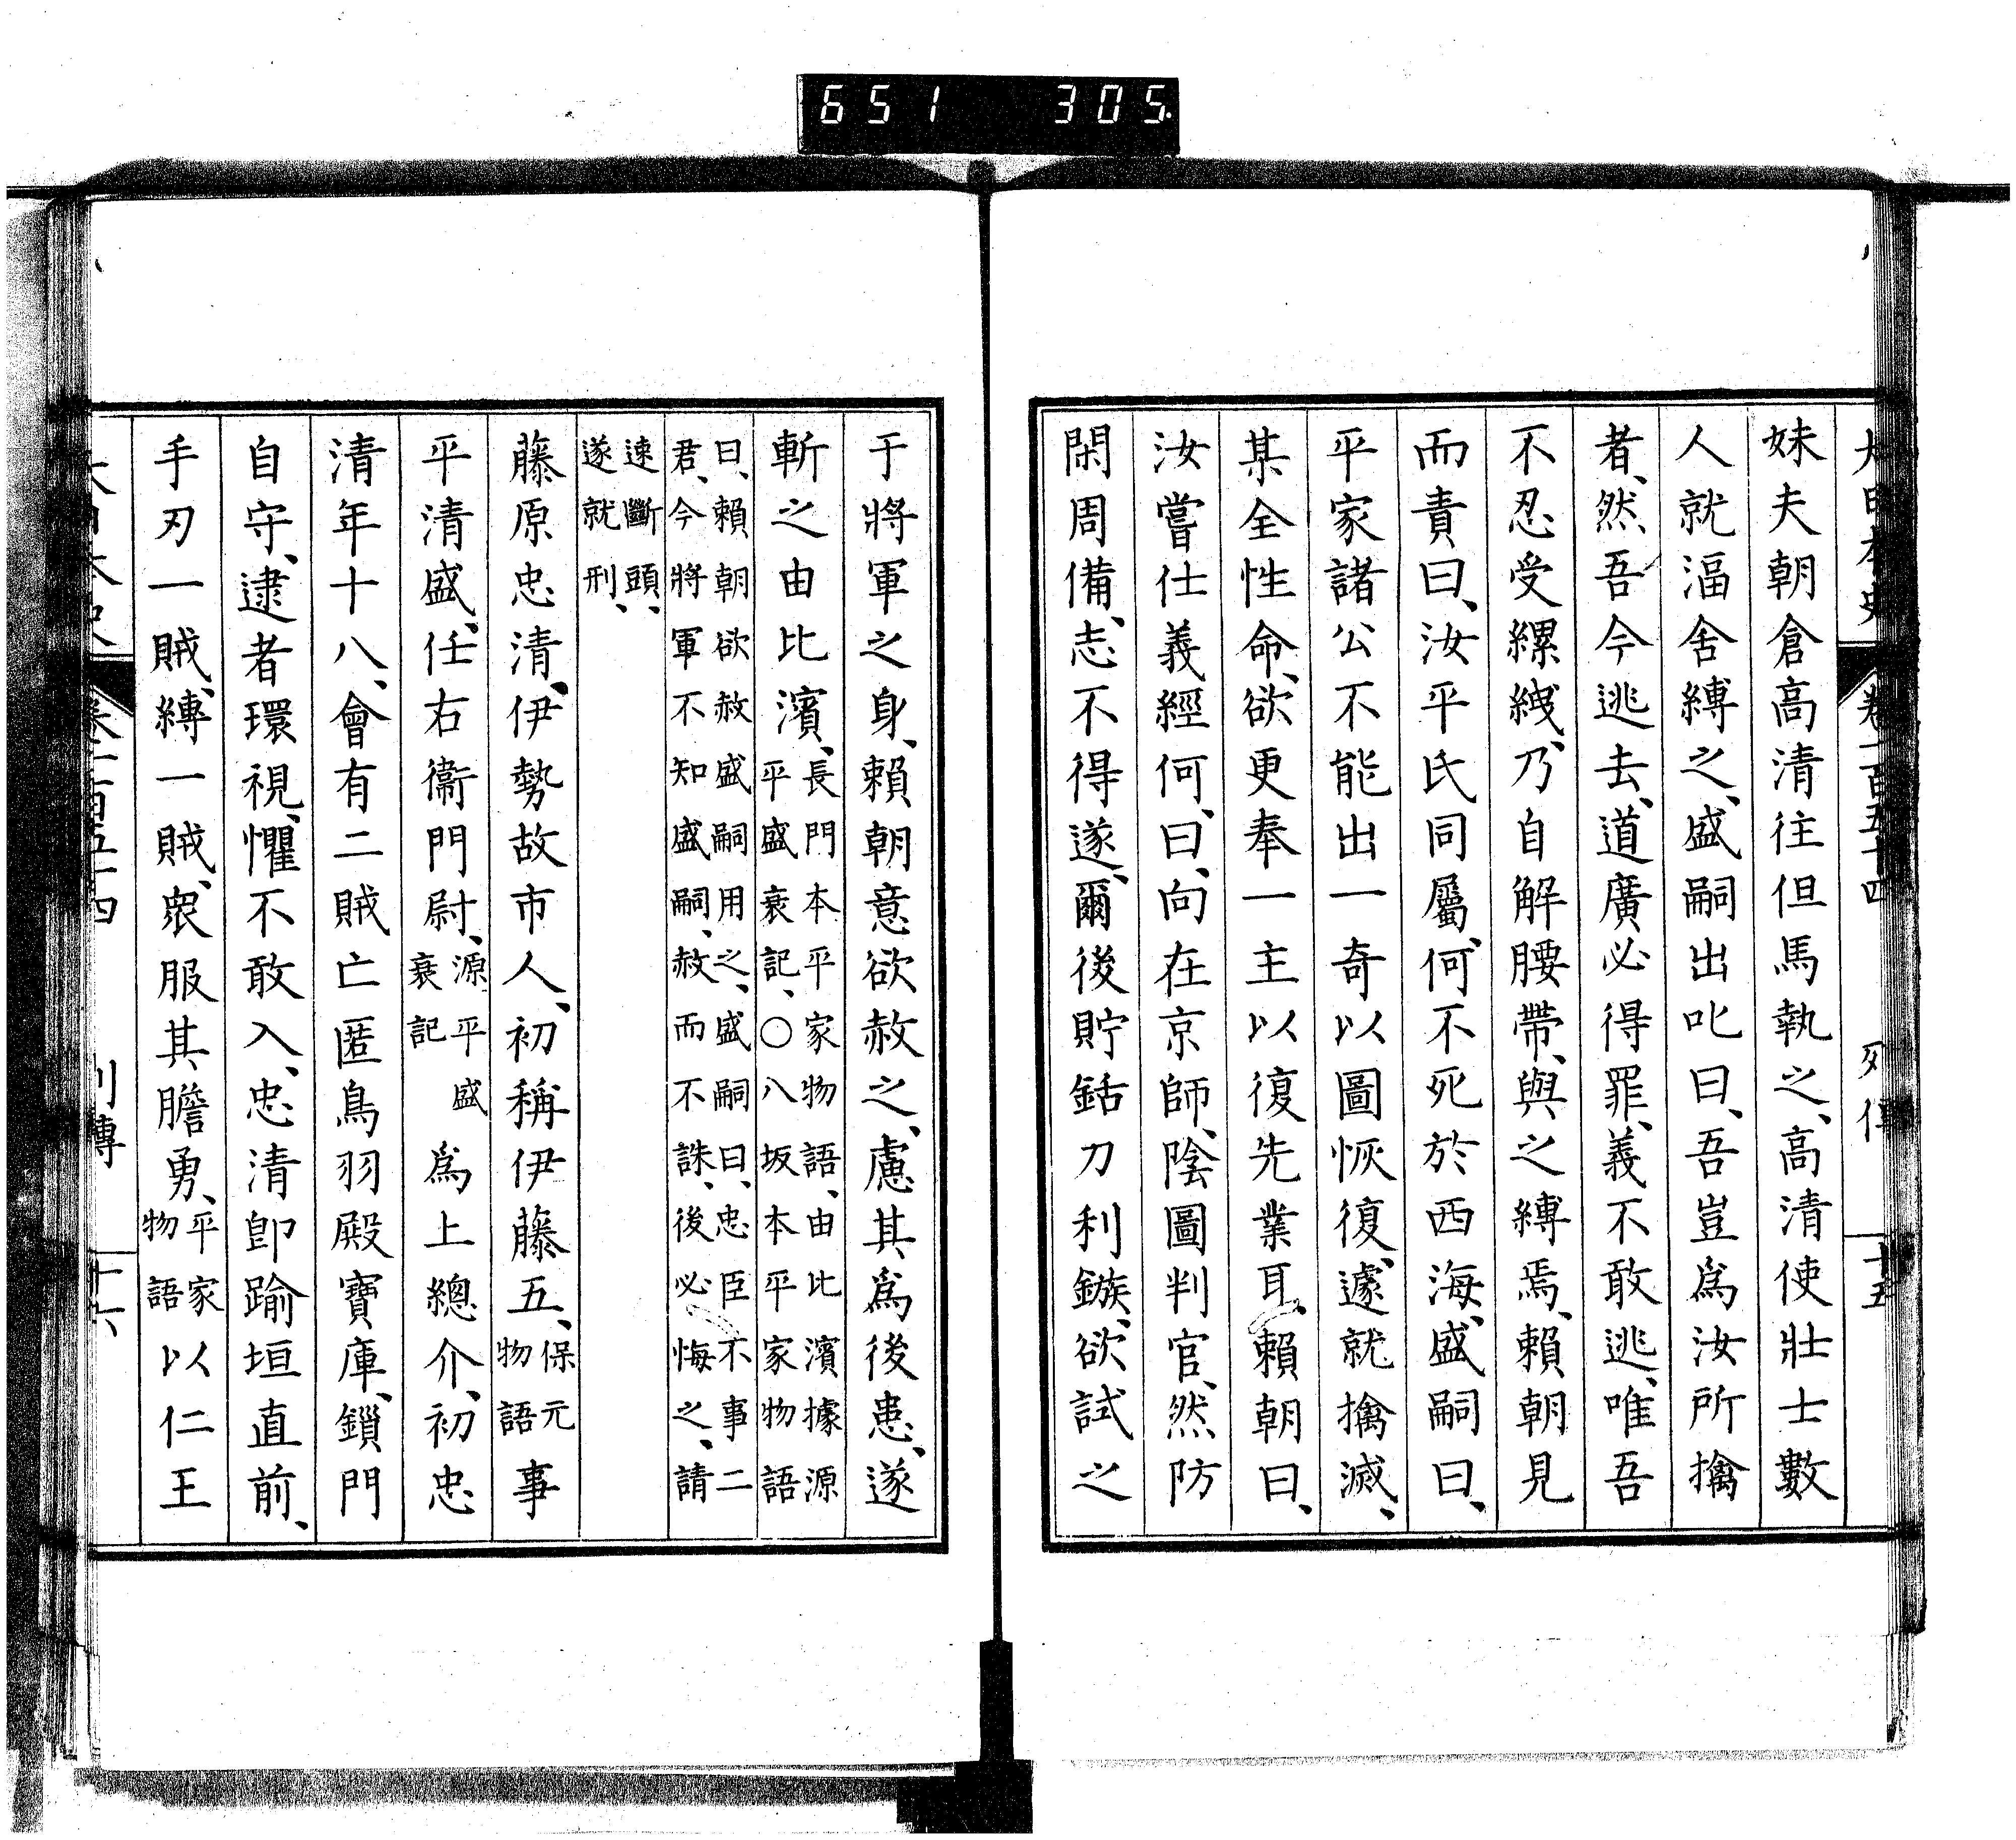 651 305
大日本史 卷一百五十四 列傳 十五
妹夫朝倉高清往但馬執之、高清使壯士數
人就湢舍縛之、盛嗣出叱曰、吾豈爲汝所擒
者、然吾今逃去、道廣必得罪、義不敢逃、唯吾
不忍受縲紲、乃自解腰帶、與之縛焉、賴朝見
而責曰、汝平氏同屬、何不死於西海、盛嗣曰、
平家諸公不能出一奇以圖恢復、遽就擒滅、
某全性命、欲更奉一主以復先業耳、賴朝曰、
汝嘗仕義經何、曰、向在京師、陰圖判官、然防
閑周備、志不得遂、爾後貯銛刀利鏃、欲試之
于將軍之身、賴朝意欲赦之、慮其爲後患、遂
斬之由比濱、長門本平家物語、由比濱據源平盛衰記、○八坂本平家物語
曰、賴朝欲赦盛嗣用之、盛嗣曰、忠臣不事二君、今將軍不知盛嗣、赦而不誅、後必悔之、請
速斷頭、遂就刑、
藤原忠清、伊勢故市人、初稱伊藤五、保元物語事
平清盛、任右衞門尉、源平盛衰記爲上總介、初忠
清年十八、會有二賊亡匿鳥羽殿寶庫、鎖門
自守、逮者環視、懼不敢入、忠清卽踰垣直前、
手刃一賊、縛一賊、衆服其膽勇、平家物語以仁王
大日本史 卷一百五十四 列傳 十六